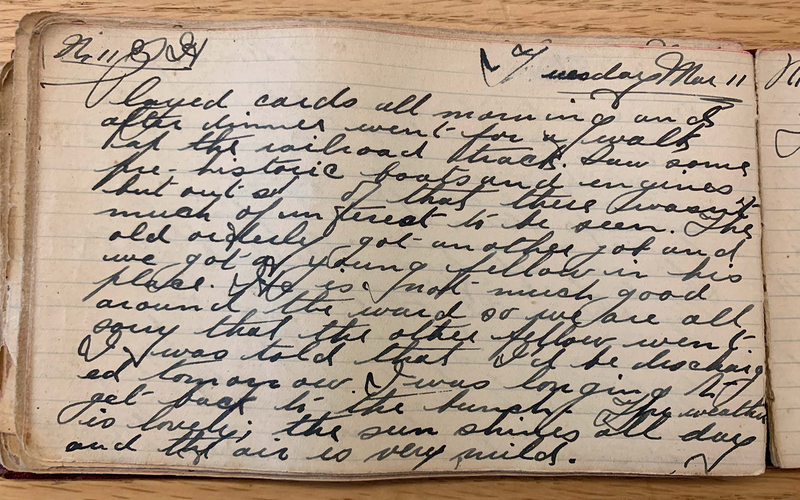 Tuesday Mar 11
Played cards all morning and
after dinner went for a walk
up the railroad track. Saw some
pre-historic boats and engines
but outsid of that there wasn't
much of interest to be seen. The
old orderly got another job and
we got a young fellow in his
place. He is not much good
around the ward so we are all
sorry that the other fellow went.
I was told that I'd be discharg
ed tomorrow. I was longing to
get back to the bunch. The weather
is lovely; the sun shines all day
and the air is very mild.